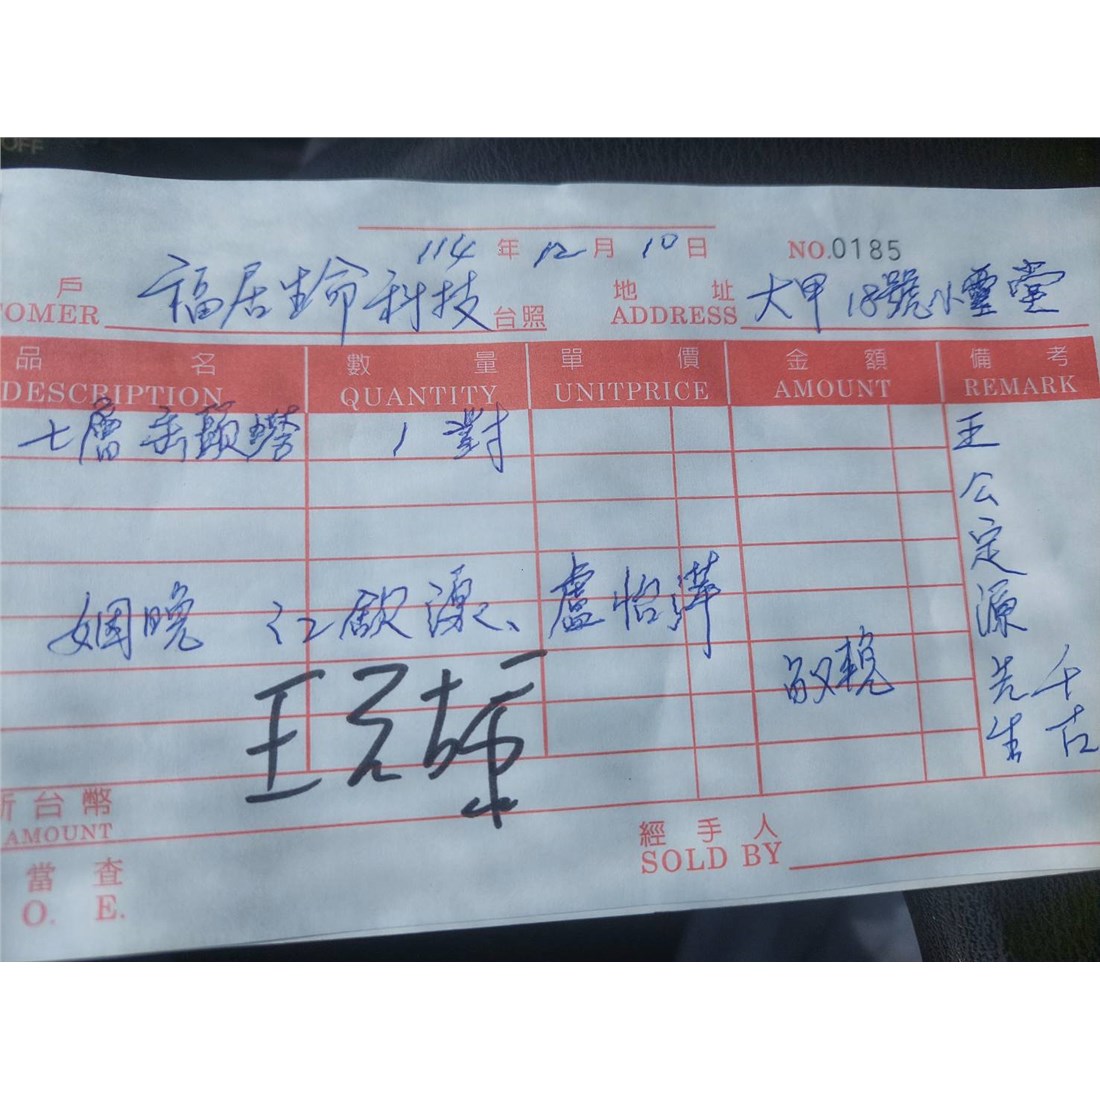 OFF
114年12月10日 NO.0185
戶 福居生命科技 台照 地址 大甲18號小靈堂
TOMER ADDRESS
品名 數量 單價 金額 備考
DESCRIPTION QUANTITY UNITPRICE AMOUNT REMARK
七層 1對
王公定源先生千古
姻晚 江欽源、盧怡萍
敬輓
王
新台幣
AMOUNT
經手人
SOLD BY
當查
O. E.